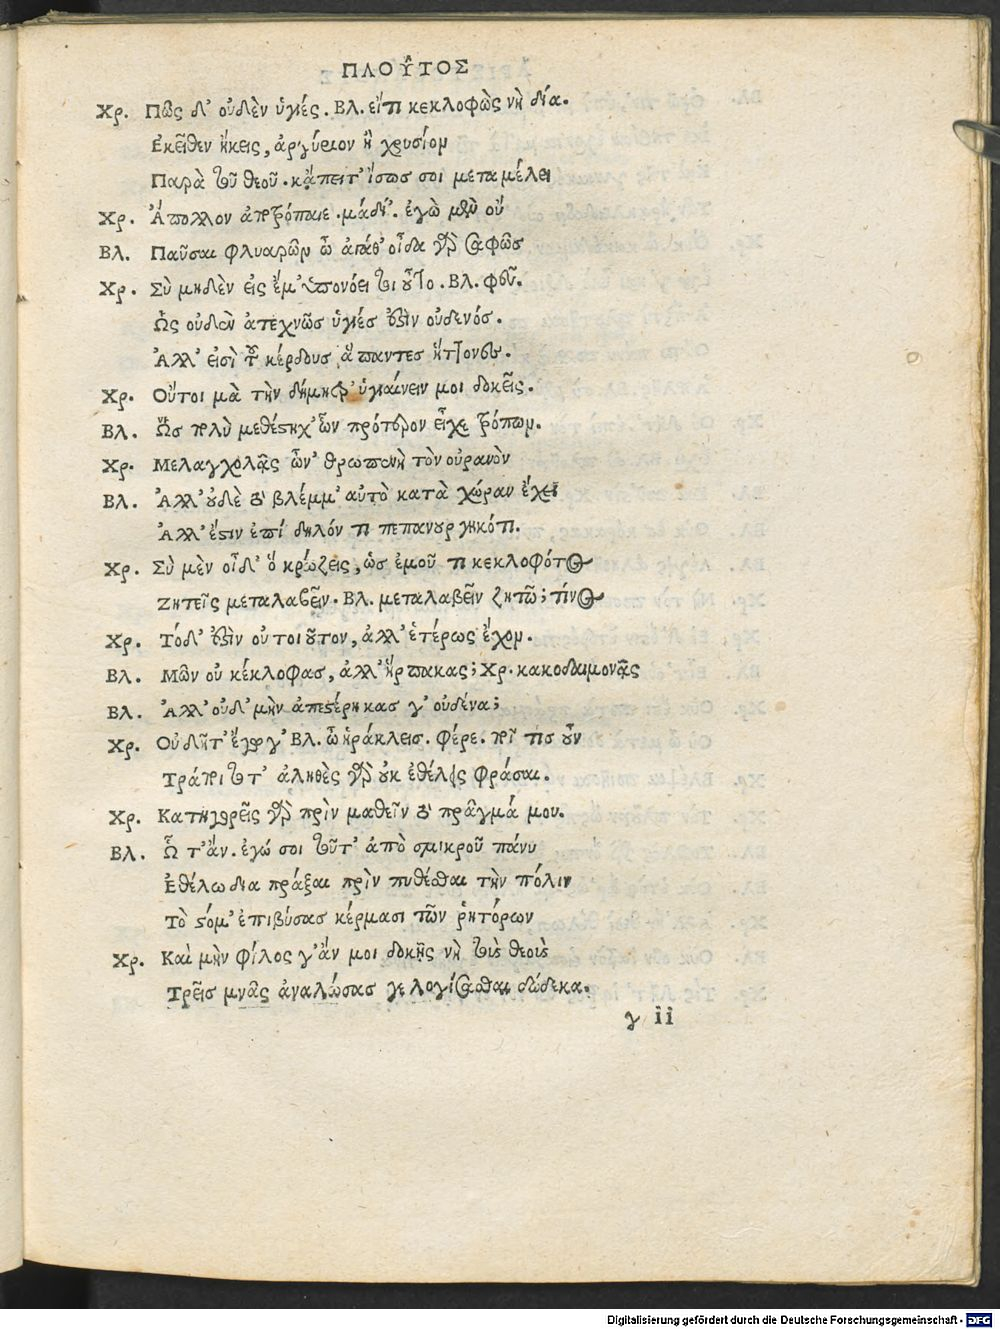 ΠΛΟΥ͂ΤΟΣ
Χρ. Πῶς δ' οὐδὲν ὑγιές. Βλ. εἴ τι κεκλοφὼς νὴ δία.
Ἐκεῖθεν ἥκεις, ἀργύριον ἢ χρυσίον
Παρὰ τοῦ θεοῦ. κἄπειτ' ἴσως σοι μεταμέλει
Χρ. Ἄπολλον ἀποτρόπαιε. μὰ δί'. ἐγὼ μὲν οὔ
Βλ. Παῦσαι φλυαρῶν ὦ ἀγάθ' οἶδα γὰρ σαφῶς
Χρ. Σὺ μηδὲν εἰς ἔμ' ὑπονόει τοιοῦτο. Βλ. φεῦ.
Ὡς οὐδὲν ἀτεχνῶς ὑγιές ἐστιν οὐδενός.
Ἀλλ' εἰσὶ τοῦ κέρδους ἅπαντες ἥττονες.
Χρ. Οὔτοι μὰ τὴν δήμητρ' ὑγιαίνειν μοι δοκεῖς.
Βλ. Ὡς πολὺ μεθέστηχ' ὧν πρότερον εἶχε τρόπων.
Χρ. Μελαγχολᾷς ὦν' θρωπε νὴ τὸν οὐρανὸν
Βλ. Ἀλλ' οὐδὲ τὸ βλέμμ' αὐτὸ κατὰ χώραν ἔχει
Ἀλλ' ἔστιν ἐπί δηλόν τι πεπανουργηκότι.
Χρ. Σὺ μὲν οἶδ' ὃ κρώζεις, ὡς ἐμοῦ τι κεκλοφότος
Ζητεῖς μεταλαβεῖν. Βλ. μεταλαβεῖν ζητῶ; τίνος
Χρ. Τόδ' ἐστὶν οὐ τοιοῦτον, ἀλλ' ἑτέρως ἔχον.
Βλ. Μῶν οὐ κέκλοφας, ἀλλ' ἥρπακας; Χρ. κακοδαιμονᾷς
Βλ. Ἀλλ' οὐδ' μὴν ἀπεστέρηκας γ' οὐδένα;
Χρ. Οὐ δῆτ' ἔγωγ' Βλ. ὦ ἡράκλεις. φέρε. ποῖ τις οὖν
Τράποιτο τ' ἀληθὲς γὰρ οὐκ ἐθέλεις φράσαι.
Χρ. Κατηγορεῖς γὰρ πρὶν μαθεῖν τὸ πρᾶγμά μου.
Βλ. Ὦ τ'ἄν. ἐγώ σοι τοῦτ' ἀπὸ σμικροῦ πάνυ
Ἐθέλω δια πρᾶξαι πρὶν πυθέσθαι τὴν πόλιν
Τὸ στόμ' ἐπιβύσας κέρμασι τῶν ῥητόρων
Χρ. Καὶ μὴν φίλος γ' ἄν μοι δοκῇς νὴ τοὺς θεοὺς
Τρεῖς μνᾶς ἀναλώσας γε λογίσασθαι δώδεκα.
γ ii
Digitalisierung gefördert durch die Deutsche Forschungsgemeinschaft - DFG